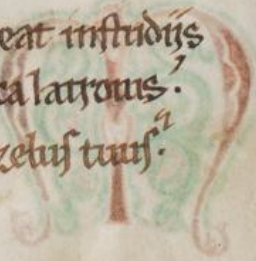 eat insidiis
ca latronis.
zelus tuus.